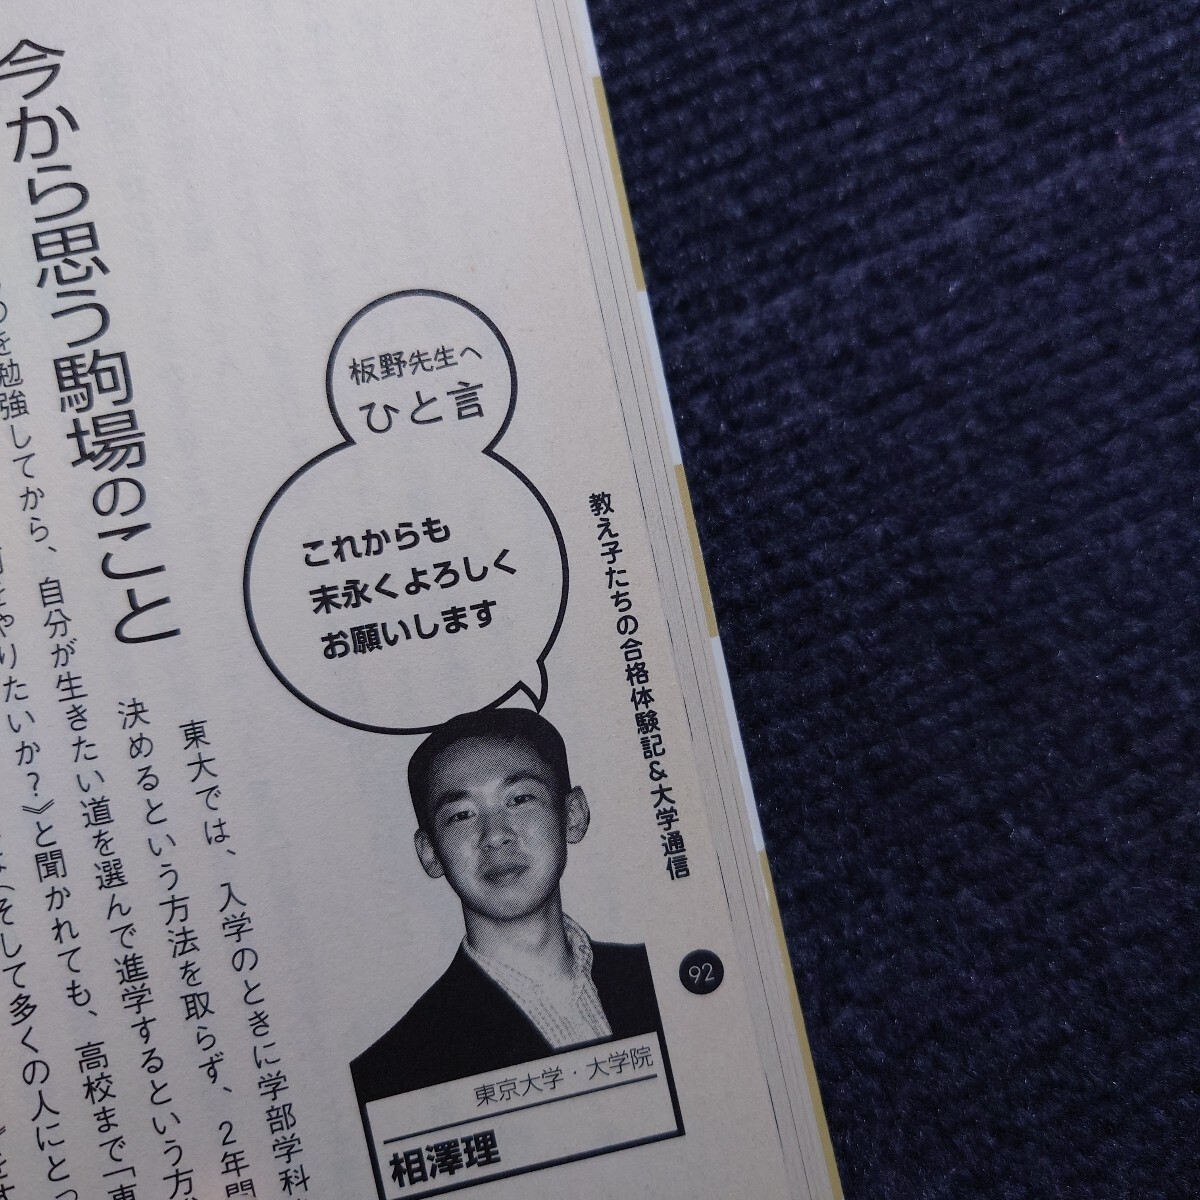 教え子たちの合格体験記&大学通信
92
板野先生へ
ひと言
これからも
末永くよろしく
お願いします
東京大学・大学院
相澤理
今から思う駒場のこと
東大では、入学のときに学部学科
決めるという方法を取らず、2年間
を勉強してから、自分が生きたい道を選んで進学するという方
やりたいか?》と聞かれても、高校まで「東
そして多くの人にとっ